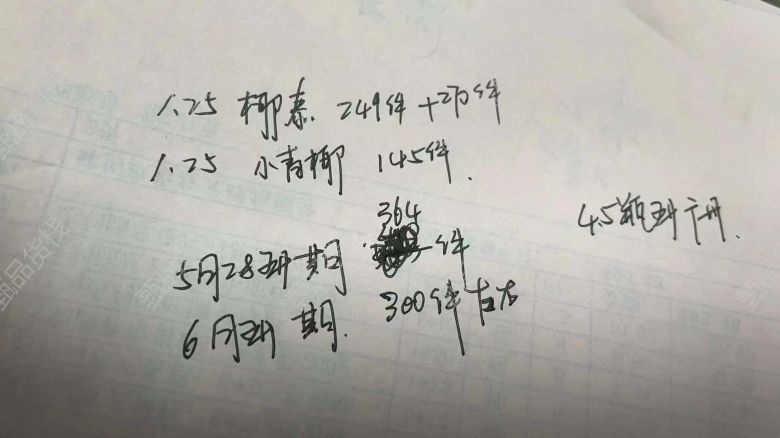 1.25 椰泰 249件+270件
1.25 小青椰 145件.
364
5月28 期 件
6月 期. 300件左右
4.5
甄品货栈